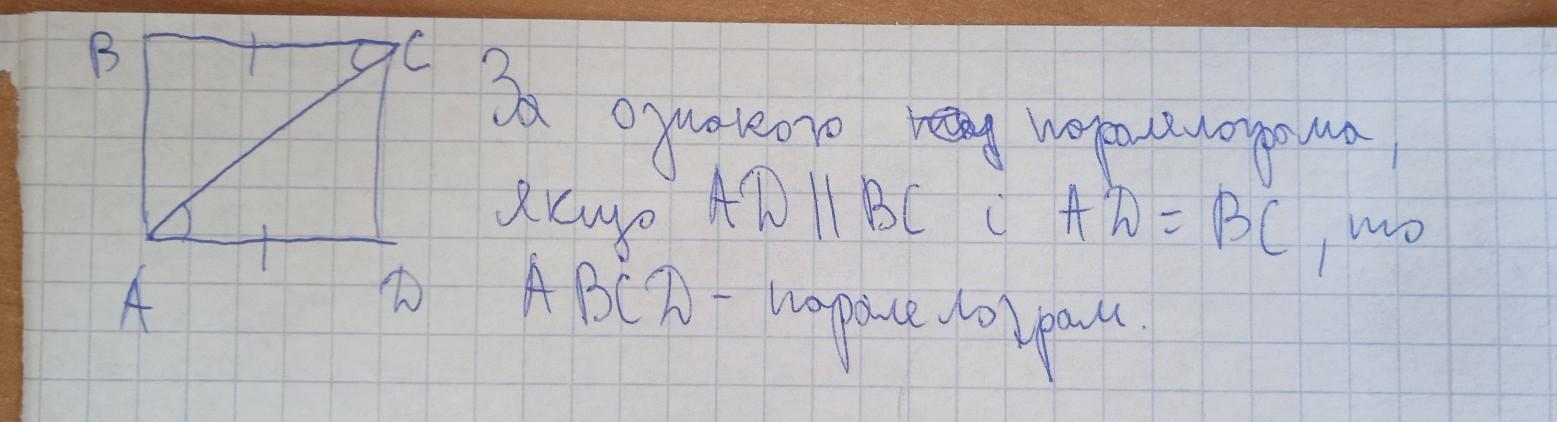 B C
За ознакою паралелограма,
якщо AD || BC і AD = BC, то
A D ABCD - паралелограм.